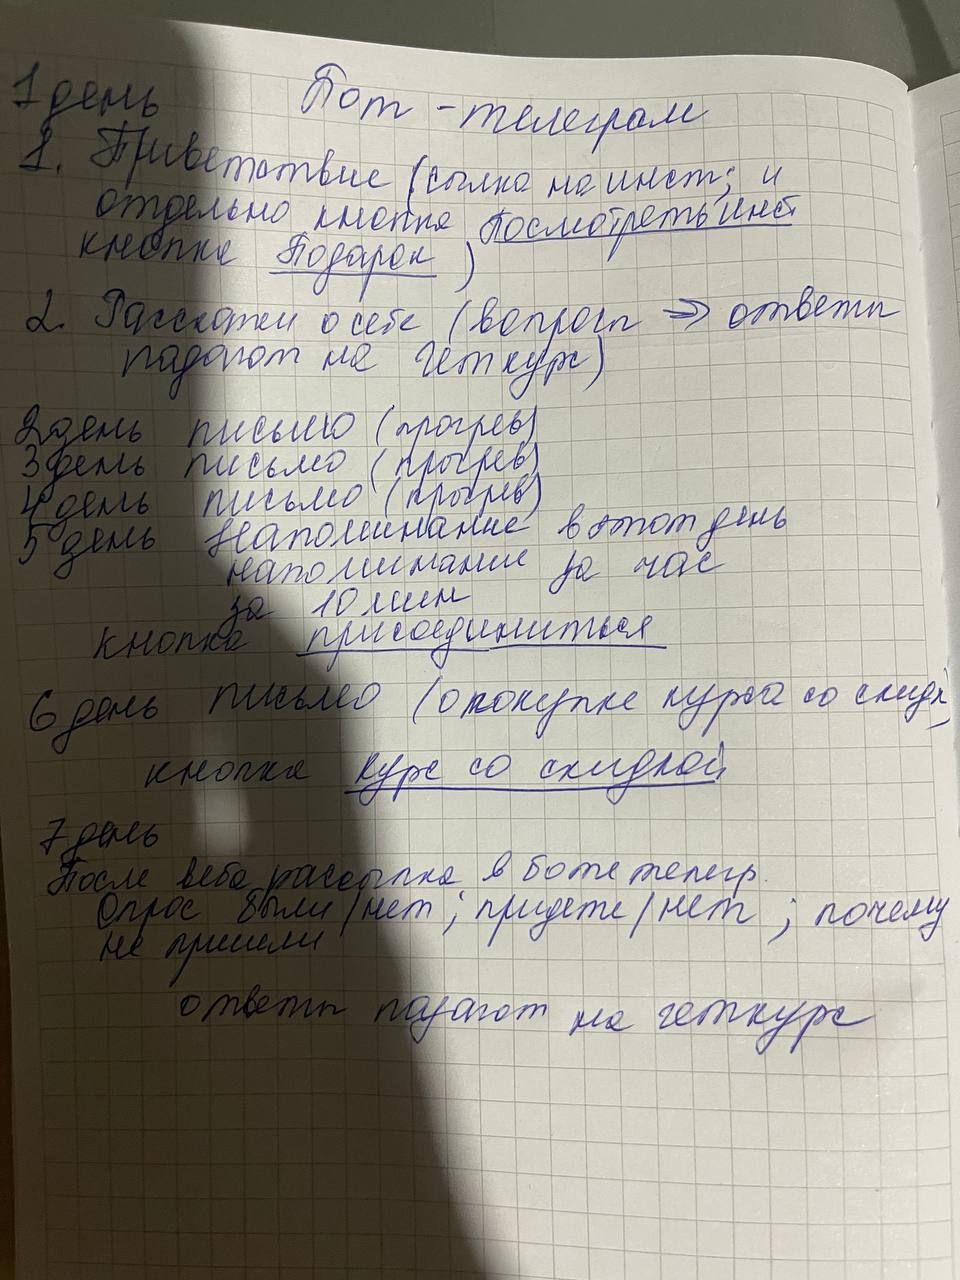 1 день Бот - телеграм
1. Приветствие (сылка на инст; и
отдельно кнопка Посмотреть инст
кнопка Подарок )
2. Расскажи о себе (вопросы => ответы
падают на Геткурс)
2 день письмо (прогрев)
3 день письмо (прогрев)
4 день письмо (прогрев)
5 день Напоминание в этот день
напоминание за час
за 10 мин
кнопка присоединиться
6 день письмо (о покупке курса со скидк)
кнопка курс со скидкой
7 день
После веба рассылка в боте телегр.
Опрос были/нет ; придете/нет ; почему
не пришли
ответы падают на геткурс